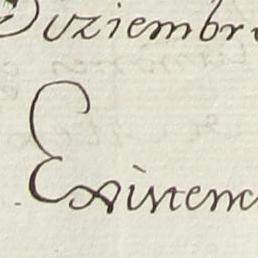 Diziembre
Existenc